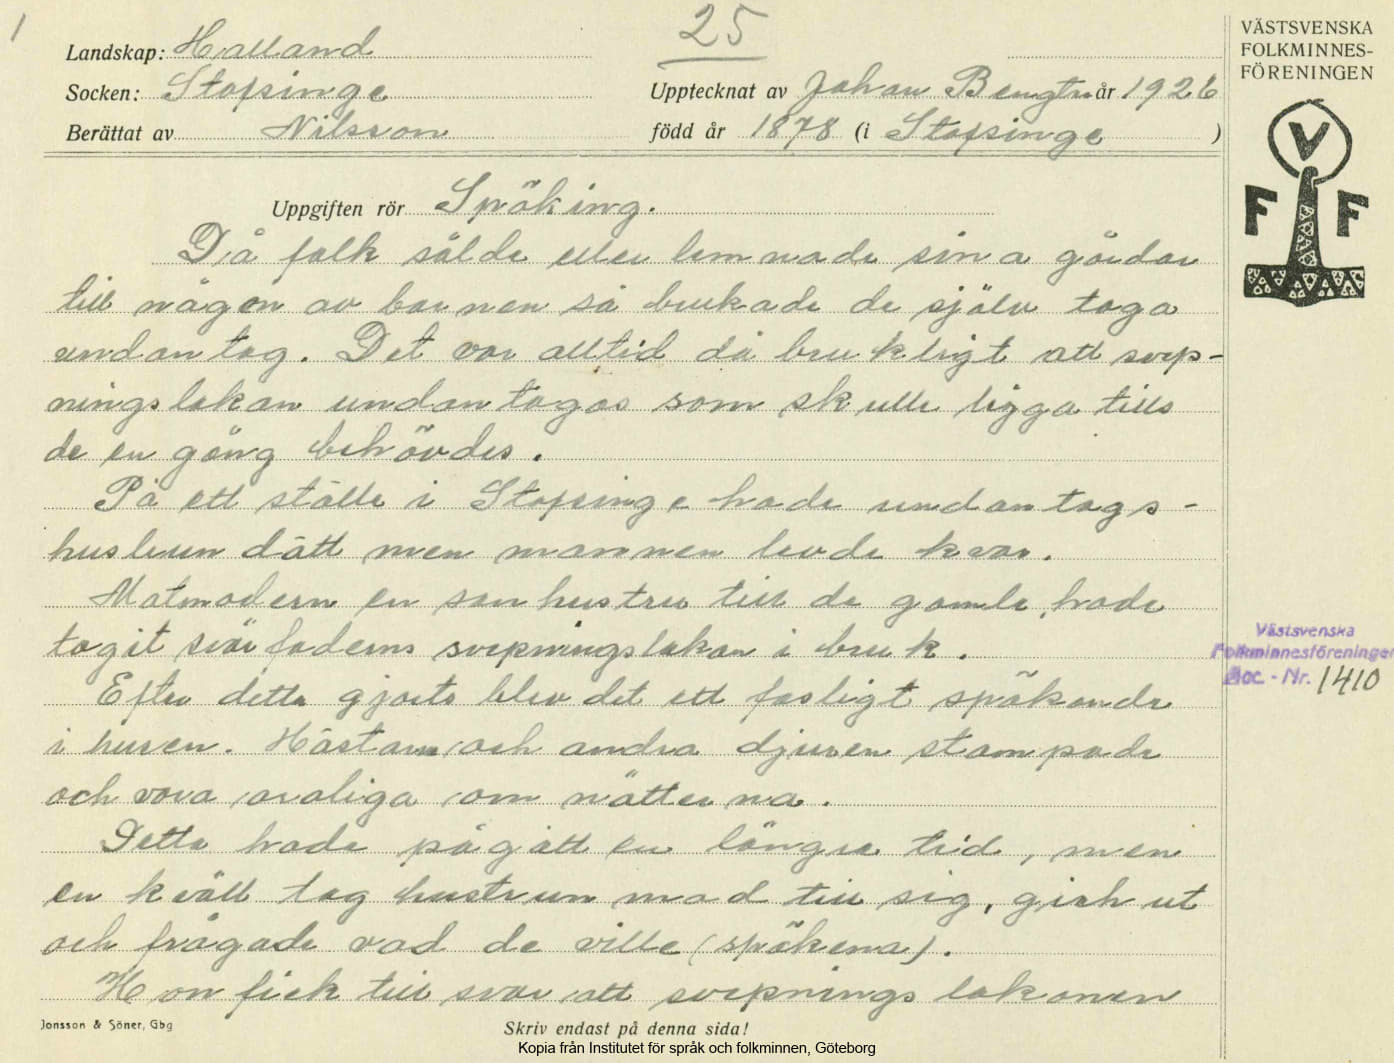 1
25
Landskap: Halland
VÄSTSVENSKA
FOLKMINNES-
FÖRENINGEN
Socken: Stafsinge
Upptecknat av Johan Bengtn år 1926
Berättat av Nilsson
född år 1878 (i Stafsinge )
V
F F
Uppgiften rör Spöking.
Då folk sälde eller lemnade sina gårdar
till någon av barnen så brukade de själv taga
undantag. Det var alltid då brukligt att svep-
ningslakan undantogos som skulle ligga tills
de en gång behövdes.
På ett ställe i Stafsinge hade undantags-
hustrun dått men mannen levde kvar.
Matmodern en sonhustru till de gamle hade
tagit svärfaderns svepningslakan i bruk.
Efter detta gjorts blev det ett fasligt spökande
i husen. Hästarna och andra djuren stampade
och vora oroliga om nätterna.
Detta hade pågått en längre tid, men
en kväll tog hustrun mod till sig, gick ut
och frågade vad de ville (spökena).
Hon fick till svar att svepnings lakanen
Västsvenska
Folkminnesföreningen
Acc. - Nr. 1410
Jonsson & Söner, Gbg
Skriv endast på denna sida!
Kopia från Institutet för språk och folkminnen, Göteborg